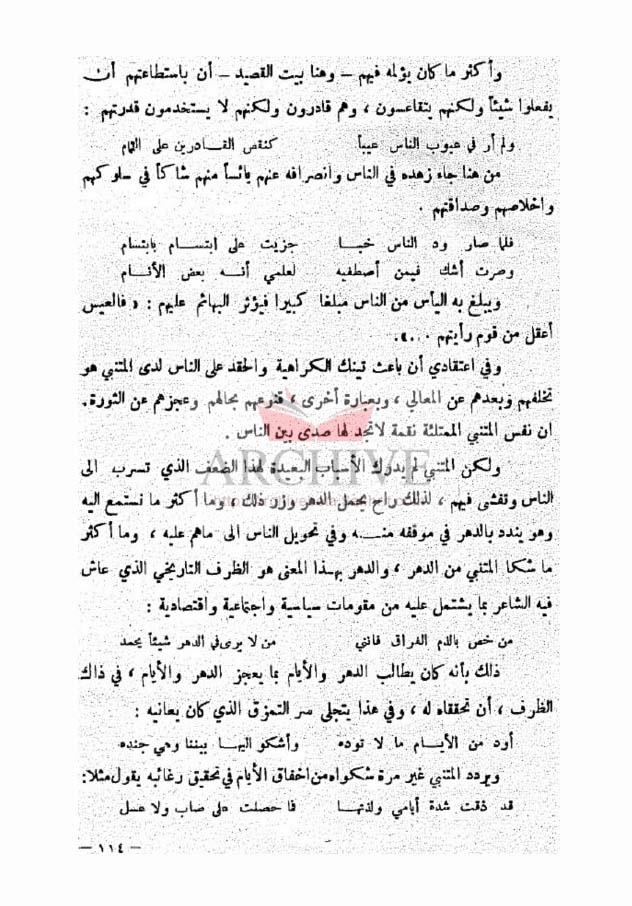 وأكثر ما كان يؤلمه فيهم – وهنا بيت القصيد – أن باستطاعتهم أن
يفعلوا شيئاً ولكنهم يتقاعسون ، وهم قادرون ولكنهم لا يستخدمون قدرتهم :
ولم أر في عيوب الناس عيباً كنقص القادرين على التمام
من هنا جاء زهده في الناس وانصرافه عنهم يائساً منهم شاكاً في سلوكهم
واخلاصهم وصداقتهم .
فلما صار ود الناس خبا جزيت على ابتسام بابتسام
وصرت أشك فيمن أصطفيه لعلمي أنه بعض الأنام
ويبلغ به اليأس من الناس مبلغا كبيرا فيؤثر البهائم عليهم : « فالعيس
أعقل من قوم رأيتهم ... » .
وفي اعتقادي أن باعث تينك الكراهية والحقد على الناس لدى المتنبي هو
تخلفهم وبعدهم عن المعالي ، وبعبارة أخرى ، قنوعهم بحالهم وعجزهم عن الثورة .
ان نفس المتنبي الممتلئة نقمة لا تجد لها صدى بين الناس .
ARCHIVE
ولكن المتنبي لم يدرك الأسباب البعيدة لهذا الضعف الذي تسرب الى
الناس وتفشى فيهم ، لذلك راح يحمل الدهر وزر ذلك ، وما أكثر ما نستمع اليه
وهو يندد بالدهر في موقفه منه وفي تحويل الناس الى ماهم عليه ، وما أكثر
ما شكا المتنبي من الدهر ، والدهر بهذا المعنى هو الظرف التاريخي الذي عاش
فيه الشاعر بما يشتمل عليه من مقومات سياسية واجتماعية واقتصادية :
من خص بالذم الفراق فانني من لا يرى في الدهر شيئاً يحمد
ذلك بأنه كان يطالب الدهر والأيام بما يعجز الدهر والأيام ، في ذاك
الظرف ، أن تحققاه له ، وفي هذا يتجلى سر التمزق الذي كان يعانيه :
أود من الأيام ما لا توده وأشكو اليها بيننا وهي جنده
ويردد المتنبي غير مرة شكواه من اخفاق الأيام في تحقيق رغائبه يقول مثلا :
قد ذقت شدة أيامي ولذتها فما حصلت على صاب ولا عسل
– ١١٤ –